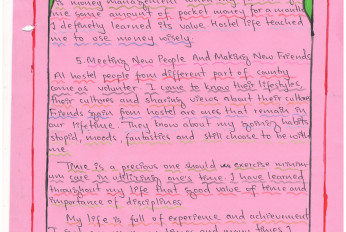 is money management when my
me same amount of pocket money for a month
I definetly learned its value. Hostel life teached
me to use money wisely.
5. Meeting New People And Making New Friends
At hostel people from different part of country
came as volunter. I came to know their lifestyles,
their cultures and sharing views about their culture
Friends gain from hostel are ones that remain in
our lifetime. They know about my going habits
stupid, moods, fantastics and still choose to be with
me.
Time is a precious one should exercise minimum
care in utilizing one's time. I have learned
throughout my life that good value of time and
importance of disciplines
My life is full of experience and achievement
and many times I